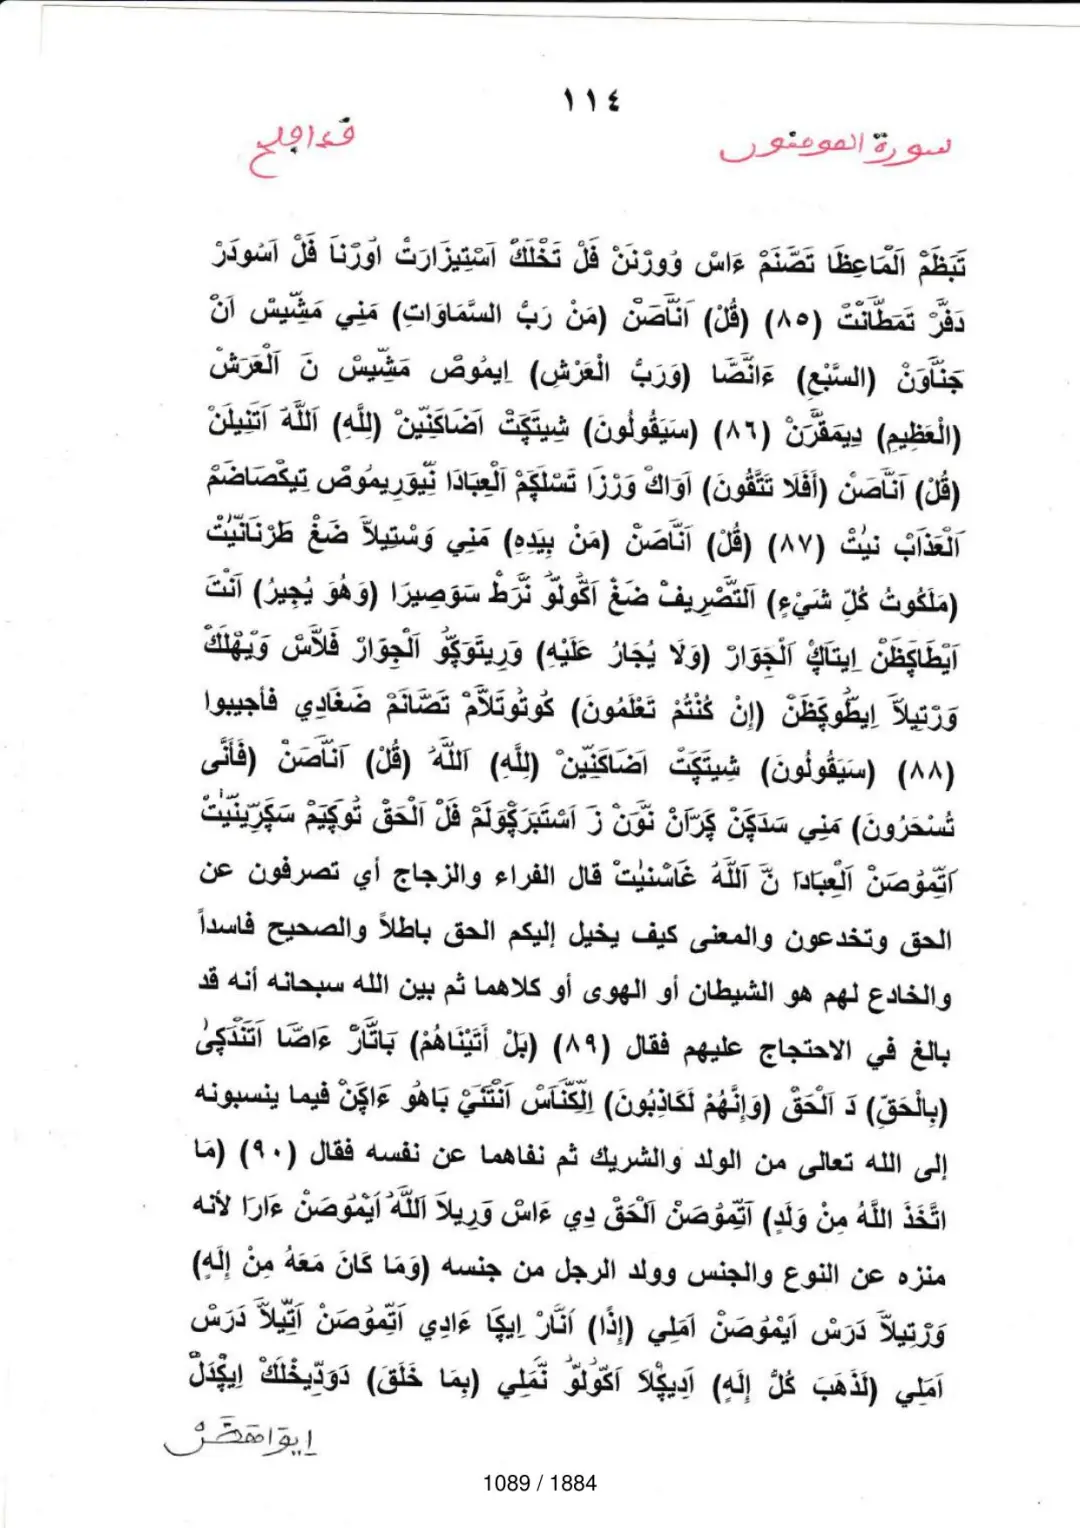 ١١٤
سورة المومنون
قد افلح
تَبَظَّمْ اَلْمَاعِظَا تَصَّنَمْ ءَاسْ وُورْنَنْ فَلْ تَخْلَكْ اَسْتِيزَارَتْ اُورْنَا فَلْ اَسُودَرْ
دَفَّرْ تَمَطَّانْتْ (٨٥) (قُلْ) اَنَّاصَنْ (مَنْ رَبُّ السَّمَاوَاتِ) مَنِي مَشِّيسْ اَنْ
جَنَّاوَنْ (السَّبْعِ) ءَانْصَّا (وَرَبُّ الْعَرْشِ) اِيمُوصْ مَشِّيسْ نَ اَلْعَرَشْ
(الْعَظِيمِ) دِيمَقَّرَنْ (٨٦) (سَيَقُولُونَ) شِيتَكَتْ اَضَاكَنِّينْ (لِلَّهِ) اَللَّهْ اَتَنِيلَنْ
(قُلْ) اَنَّاصَنْ (أَفَلَا تَتَّقُونَ) اَوَاكْ وَرْزَا تَسْلَكَمْ اَلْعِبَادَا نِّيوَرِيمُوصْ تِيكْصَاضَمْ
اَلْعَذَابْ نيٰتْ (٨٧) (قُلْ) اَنَّاصَنْ (مَنْ بِيَدِهِ) مَنِي وَسْتِيلاَّ ضَغْ طَرْنَانِّيٰتْ
(مَلَكُوتُ كُلِّ شَيْءٍ) اَلتَّصْرِيفْ ضَغْ اَكُّولُوُّ نَّرَطْ سَوَصِيرَا (وَهُوَ يُجِيرُ) اَنْتَ
اَيْطَاكِظَنْ اِيتَاكِ اَلْجَوَارْ (وَلَا يُجَارُ عَلَيْهِ) وَرِيتَوَكُّو اَلْجِوَارْ فَلاَّسْ وَيْهْلَكْ
وَرْتِيلاَّ اِيطُوكِظَنْ (إِنْ كُنْتُمْ تَعْلَمُونَ) كُوتُوتَلاَّمْ تَصَّانَمْ ضَغَادِي فأجيبوا
(٨٨) (سَيَقُولُونَ) شِيتَكَتْ اَضَاكَنِّينْ (لِلَّهِ) اَللَّهْ (قُلْ) اَنَّاصَنْ (فَأَنَّى
تُسْحَرُونَ) مَنِي سَدَكَنْ كَرَاَنْ نَّوَنْ زَ اَسْتَبَرَكَوَلَمْ فَلْ اَلْحَقْ تُوكَيَمْ سَكَرِّينِّيٰتْ
اَتِّمُوصَنْ اَلْعِبَادَا نَّ اَللَّهْ غَاسْنيٰتْ قال الفراء والزجاج أي تصرفون عن
الحق وتخدعون والمعنى كيف يخيل إليكم الحق باطلاً والصحيح فاسداً
والخادع لهم هو الشيطان أو الهوى أو كلاهما ثم بين الله سبحانه أنه قد
بالغ في الاحتجاج عليهم فقال (٨٩) (بَلْ أَتَيْنَاهُمْ) بَاتَّارْ ءَاصَّا اَتَنْدَكىٰ
(بِالْحَقِّ) دَ اَلْحَقْ (وَإِنَّهُمْ لَكَاذِبُونَ) اِلْكَنَّاسْ اَنْتَنَيْ بَاهُو ءَاكَنْ فيما ينسبونه
إلى الله تعالى من الولد والشريك ثم نفاهما عن نفسه فقال (٩٠) (مَا
اتَّخَذَ اللَّهُ مِنْ وَلَدٍ) اَتِّمُوصَنْ اَلْحَقْ دِي ءَاسْ وَرِيلاَ اَللَّهْ اَيْمُوصَنْ ءَارَا لأنه
منزه عن النوع والجنس وولد الرجل من جنسه (وَمَا كَانَ مَعَهُ مِنْ إِلَهٍ)
وَرْتِيلاَّ دَرَسْ اَيْمُوصَنْ اَمَلِي (إِذًا) اَنَّارْ اِيكَا ءَادِي اَتِّمُوصَنْ اَتِّيلاَّ دَرَسْ
اَمَلِي (لَذَهَبَ كُلُّ إِلَهٍ) اَدِيكْلاَ اَكُّولُوُّ نَّمَلِي (بِمَا خَلَقَ) دَوَدِّيخْلَكْ اِيكَدَلْ
1089 / 1884